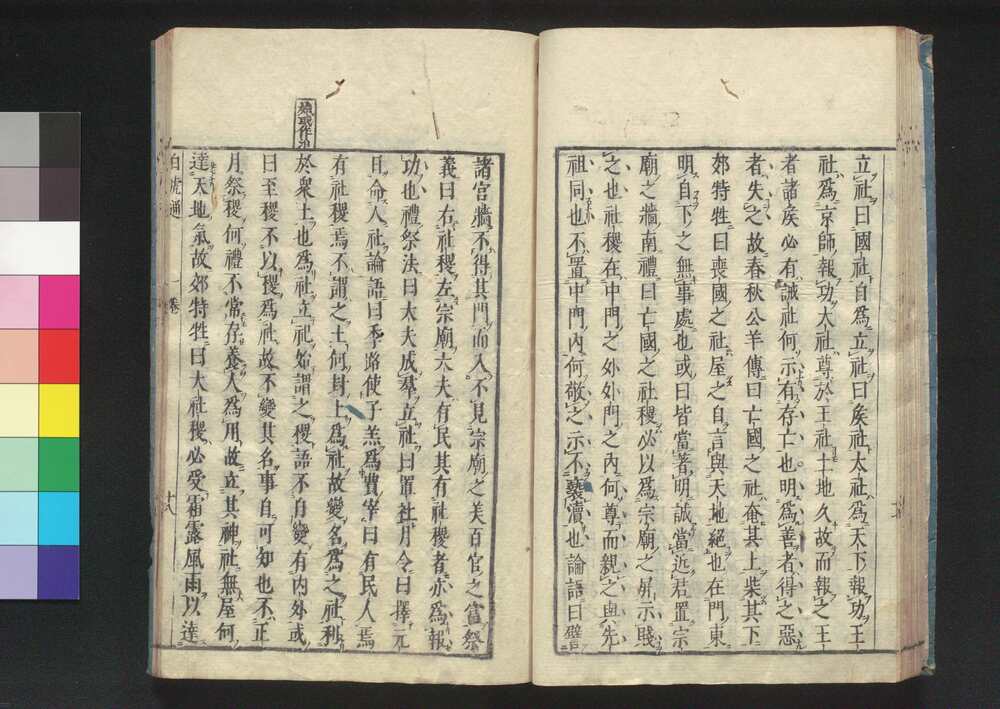 立社曰國社自爲立社曰矦社太社爲天下報功王
社爲京師報功大社尊於王社土地久故而報之王
者諸矦必有誡社何示有存亡也明爲善者得之惡
者失之故春秋公羊傳曰亡國之社奄其上柴其下
郊特牲曰喪國之社屋之自言與天地絕也在門東
明自下之無事處也或曰皆當著明誠當近君置宗
廟之牆南禮曰亡國之社稷必以爲宗廟之屏示賤
之也社稷在中門之外外門之內何尊而親之與先
祖同也不置中門內何敬之示不褻瀆也論語曰譬
諸宮牆不得其門而入不見宗廟之美百官之富祭
義曰右社稷左宗廟大夫有民其有社稷者亦爲報
功也禮祭法曰大夫成羣立社曰置社月令曰擇元
日命人社論語曰季路使子羔爲費宰曰有民人焉
有社稷焉不謂之土何封土爲社故變名爲之社利
於衆土也爲社立祀始謂之稷語不自變有內外或
曰至稷不以稷爲社故不變其名事自可知也不正
月祭稷何禮不常存養人爲用故立其神社無屋何
達天地氣故郊特牲曰大社稷必受霜露風雨以達
白虎通 一卷 十八